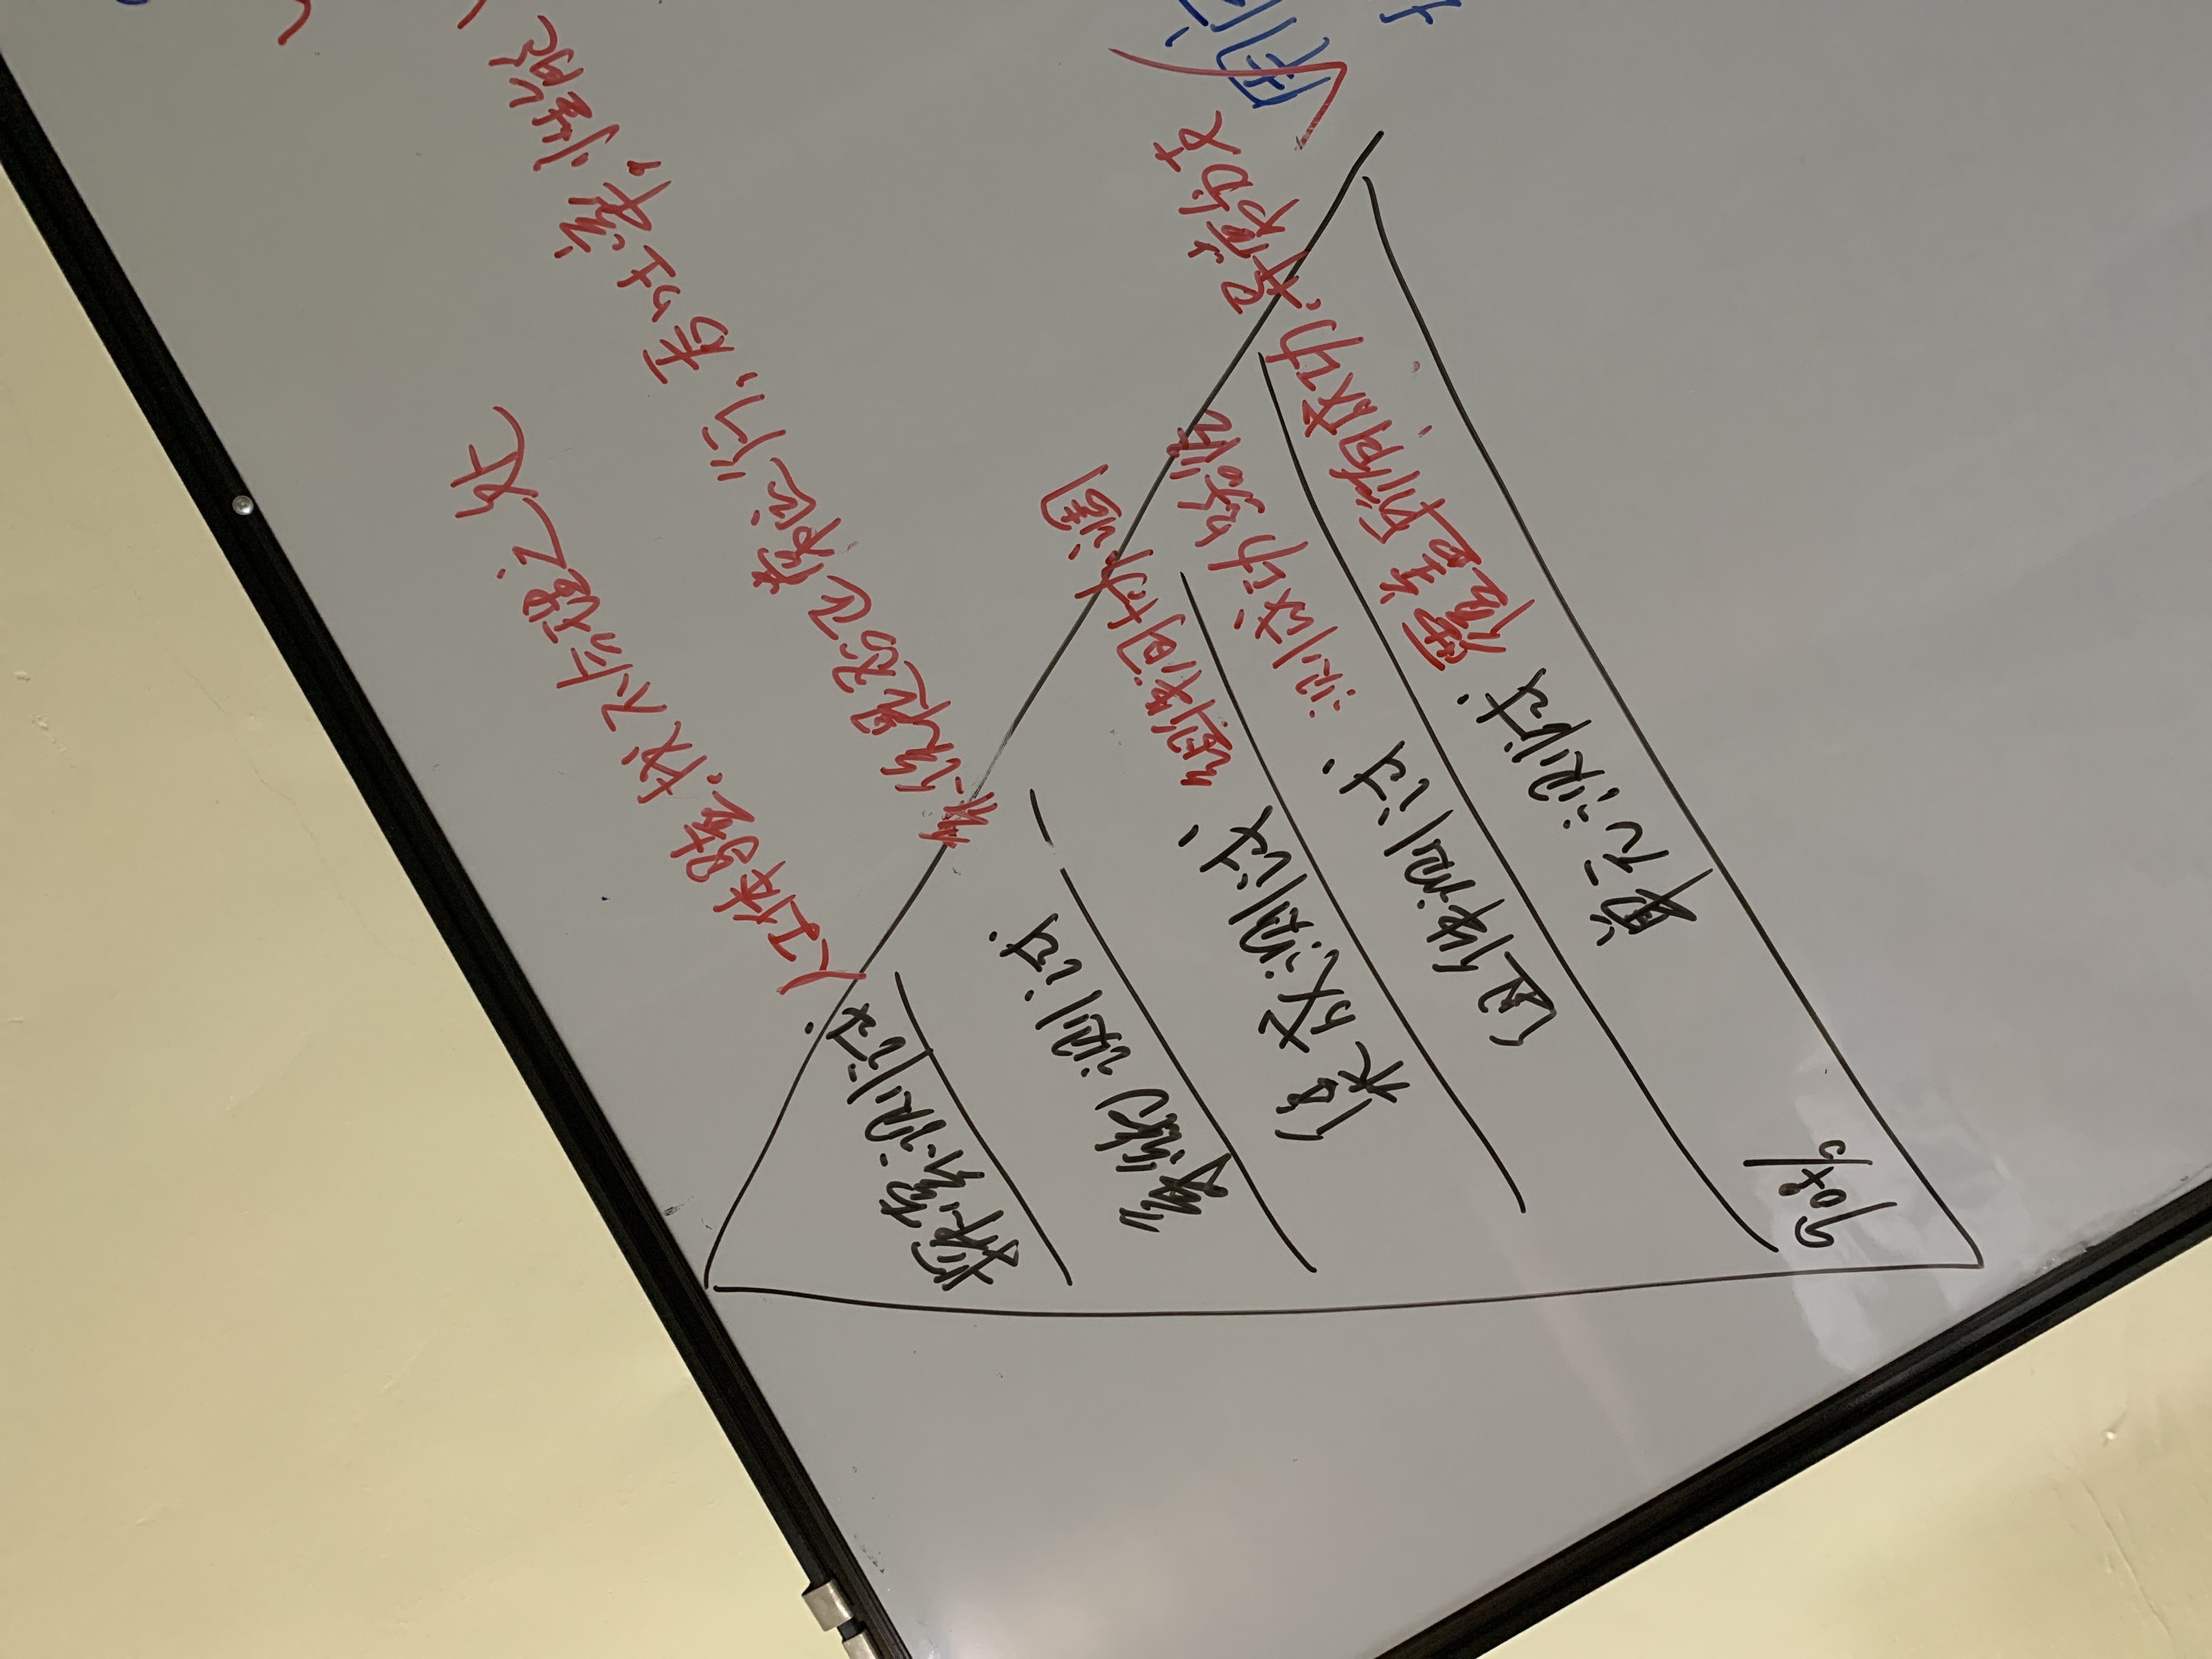 探索测试 人工体验,找不合理之处
系统测试 系统是否正常运行,吞吐率,性能
集成测试 组件间协调
组件测试 测成功路径
单元测试 覆盖所有成功、异常分支
90%
用